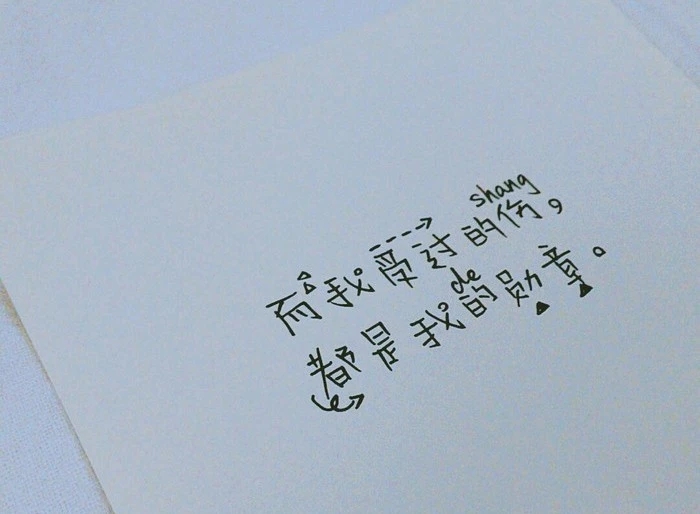 shang
而我受过的伤，
de
都是我的勋章。